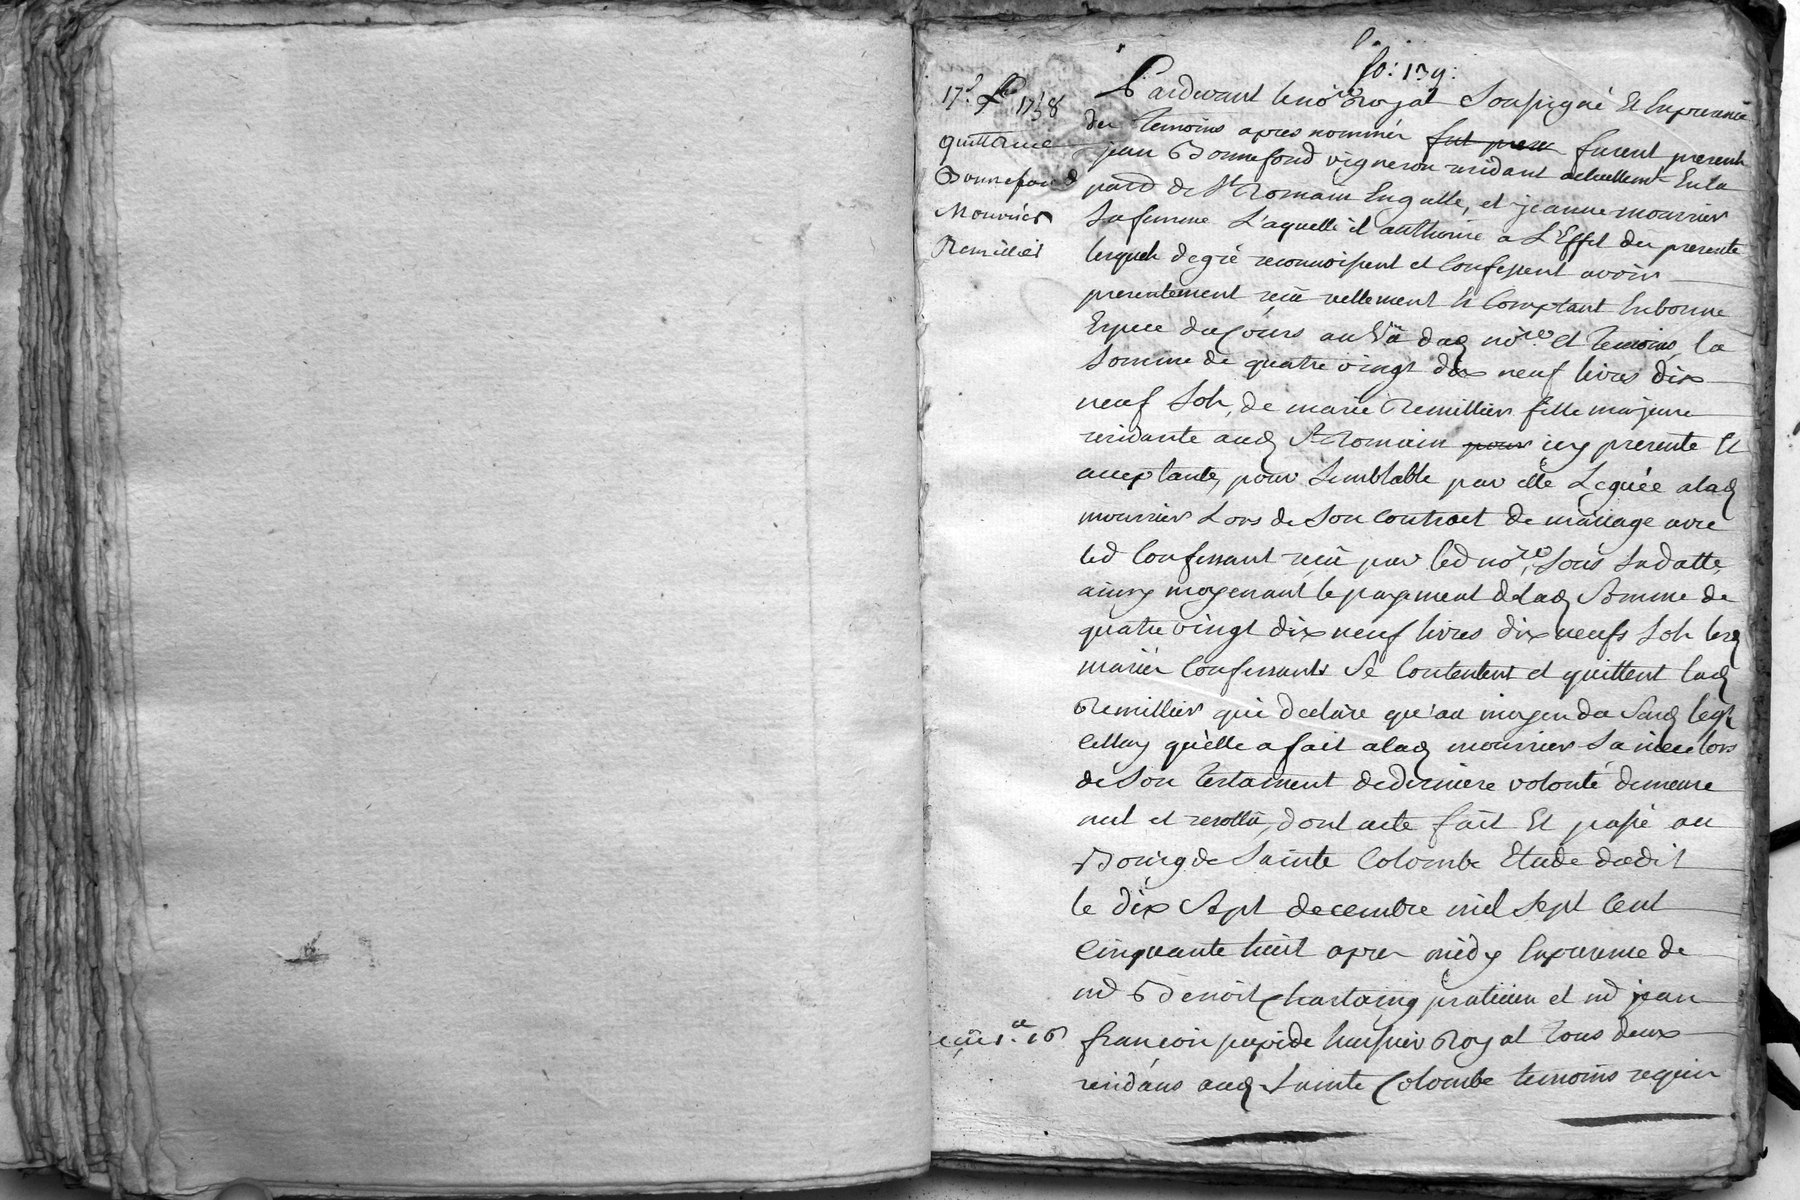 fo: 139:
17e Xbre 1758
quittance
Bonnefond
Mourrier
Remillier
Pardevant le nore Royal Soussigné Et En presence
des temoins apres nommés fut presen furent presents
jean Bonnefond vigneron residant actuellemt En la
parr de St Romain Engalle, et jeanne mourrier
Sa femme L'aquelle il authorise a L'Effet des presente
lesquels de gré reconnoissent et Confessent avoir
presentement reçu reellement Et Comptant En bonne
Espece du Cours au Vû dud nore et temoins la
Somme de quatre vingt dix neuf livres dix
neuf Sols, de marie Remillier fille majeure
residante aud St Romain pour icy presente Et
acceptante, pour Semblable par elle Leguée alad
mourrier Lors de Son Contract de mariage avec
led Confessant reçu par led nore, Sous Sa datte,
ainsy moyenant le payement de lad Somme de
quatre vingt dix neuf livres dix neufs Sols lesd
mariés Confessants Se Contentent et quittent lad
Remillier qui declare qu'au moyen du Susd
quelle a fait alad mourrier Sa niece lors
de Son testament de derniere volonté demeure
nul et resollu, dont acte fait Et passé au
Bourg de Sainte Colombe Etude dudit
le dix Sept decembre mil Sept Cent
Cinquante huit apres midy En presence de
md Benoit Chartaing praticien et md jean
francois huissier Royal tous deux
residans aud Sainte Colombe temoins requis